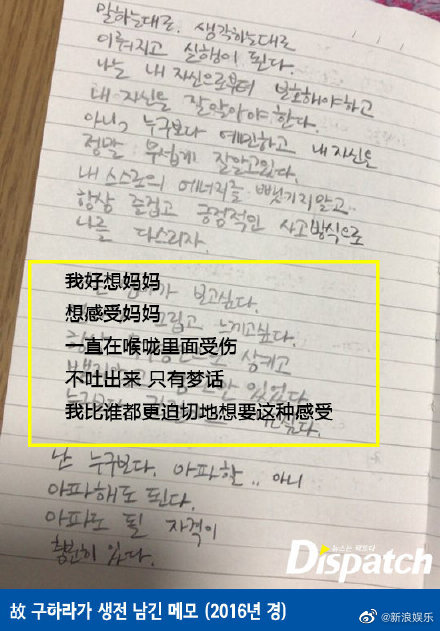 말하는대로. 생각하는대로
이뤄지고 실행이 된다.
나는 내 자신으로부터 보호해야하고
내 자신을 잘알아야 한다.
아니, 누구보다 예민하고 내 자신은
정말 무섭게 잘알고있다.
내 스스로의 에너지를 뺏기지말고
항상 즐겁고 긍정적인 사고방식으로
나를 다스리자.
가 보고싶다.
我好想妈妈
그립고 느끼고싶다.
想感受妈妈
삼키고
一直在喉咙里面受伤
있었다.
不吐出来 只有梦话
我比谁都更迫切地想要这种感受
난 누구보다. 아파할.. 아니
아파해도 된다.
아파도 될 자격이
충분히 있다.
뉴스는 팩트다
Dispatch
故 구하라가 생전 남긴 메모 (2016년 경)
@新浪娱乐